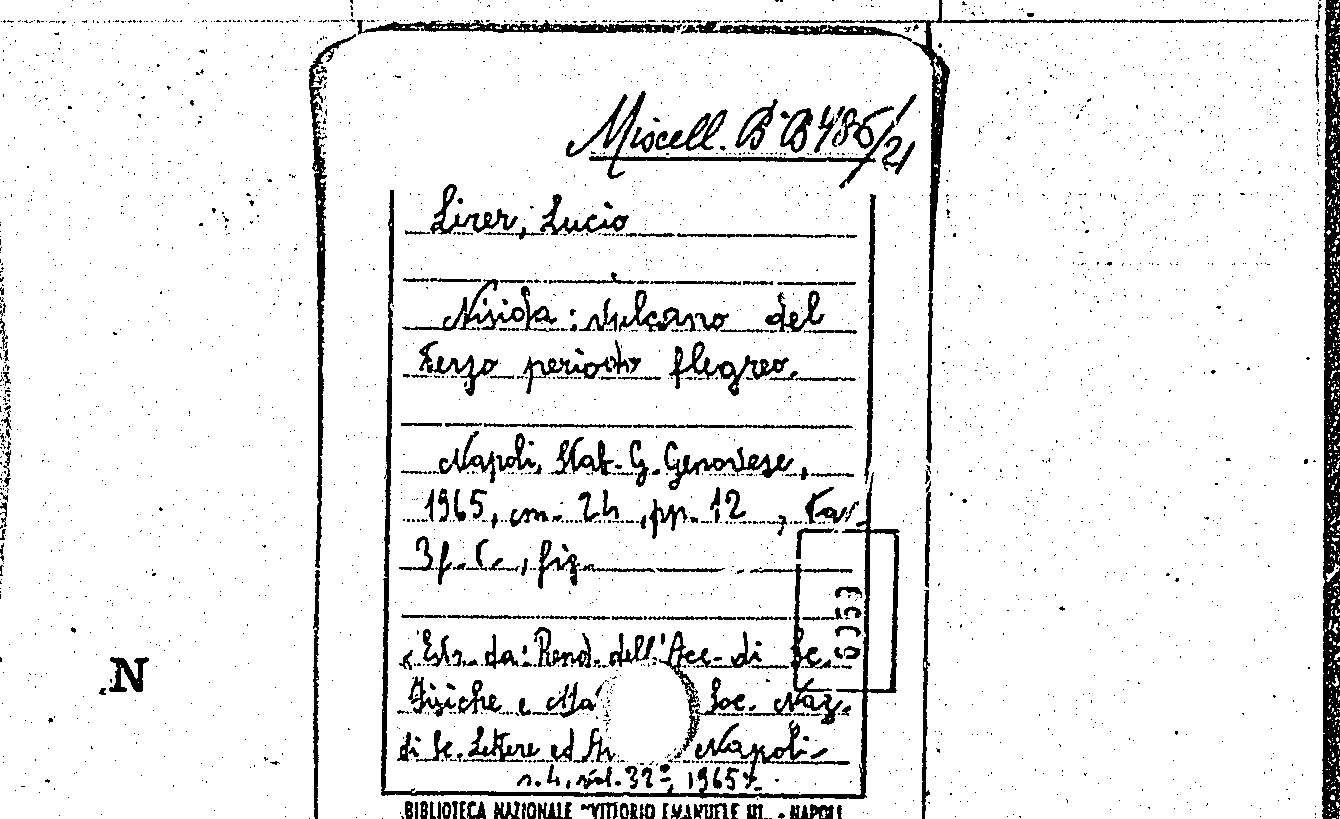 Miscell. B. B 486/21
Lirer, Lucio
Nisida: vulcano del
Terzo periodo flegreo.
Napoli, Stab. G. Genovese,
1965, cm. 24, pp. 12, Tav.
3 f. t., fig.
(Estr. da: Rend. dell'Acc. di Sc.
Fisiche e Soc. Naz.
di Sc. Lettere ed Napoli
s. 4, vol. 32º, 1965).
N
BIBLIOTECA NAZIONALE "VITTORIO EMANUELE III" - NAPOLI